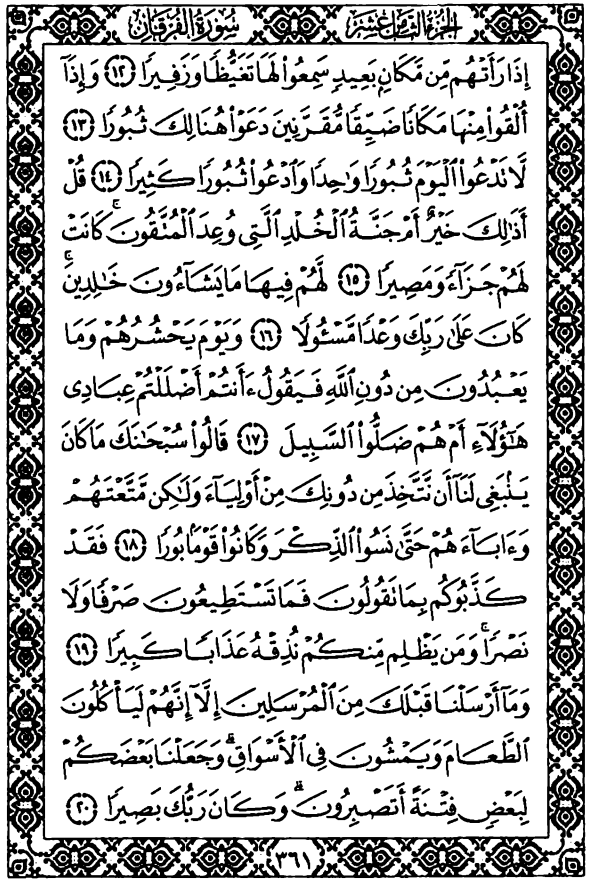 الجزء الثامن عشر سورة الفرقان
إِذَا رَأَتْهُم مِّن مَّكَانٍۭ بَعِيدٍ سَمِعُوا۟ لَهَا تَغَيُّظًا وَزَفِيرًا ١٢ وَإِذَآ
أُلْقُوا۟ مِنْهَا مَكَانًا ضَيِّقًا مُّقَرَّنِينَ دَعَوْا۟ هُنَالِكَ ثُبُورًا ١٣
لَّا تَدْعُوا۟ ٱلْيَوْمَ ثُبُورًا وَٰحِدًا وَٱدْعُوا۟ ثُبُورًا كَثِيرًا ١٤ قُلْ
أَذَٰلِكَ خَيْرٌ أَمْ جَنَّةُ ٱلْخُلْدِ ٱلَّتِى وُعِدَ ٱلْمُتَّقُونَ ۚ كَانَتْ
لَهُمْ جَزَآءً وَمَصِيرًا ١٥ لَّهُمْ فِيهَا مَا يَشَآءُونَ خَٰلِدِينَ ۚ
كَانَ عَلَىٰ رَبِّكَ وَعْدًا مَّسْـُٔولًا ١٦ وَيَوْمَ يَحْشُرُهُمْ وَمَا
يَعْبُدُونَ مِن دُونِ ٱللَّهِ فَيَقُولُ ءَأَنتُمْ أَضْلَلْتُمْ عِبَادِى
هَٰٓؤُلَآءِ أَمْ هُمْ ضَلُّوا۟ ٱلسَّبِيلَ ١٧ قَالُوا۟ سُبْحَٰنَكَ مَا كَانَ
يَنۢبَغِى لَنَآ أَن نَّتَّخِذَ مِن دُونِكَ مِنْ أَوْلِيَآءَ وَلَٰكِن مَّتَّعْتَهُمْ
وَءَابَآءَهُمْ حَتَّىٰ نَسُوا۟ ٱلذِّكْرَ وَكَانُوا۟ قَوْمًۢا بُورًا ١٨ فَقَدْ
كَذَّبُوكُم بِمَا تَقُولُونَ فَمَا تَسْتَطِيعُونَ صَرْفًا وَلَا
نَصْرًا ۚ وَمَن يَظْلِم مِّنكُمْ نُذِقْهُ عَذَابًا كَبِيرًا ١٩
وَمَآ أَرْسَلْنَا قَبْلَكَ مِنَ ٱلْمُرْسَلِينَ إِلَّآ إِنَّهُمْ لَيَأْكُلُونَ
ٱلطَّعَامَ وَيَمْشُونَ فِى ٱلْأَسْوَاقِ ۗ وَجَعَلْنَا بَعْضَكُمْ
لِبَعْضٍ فِتْنَةً أَتَصْبِرُونَ ۗ وَكَانَ رَبُّكَ بَصِيرًا ٢٠
٣٦١